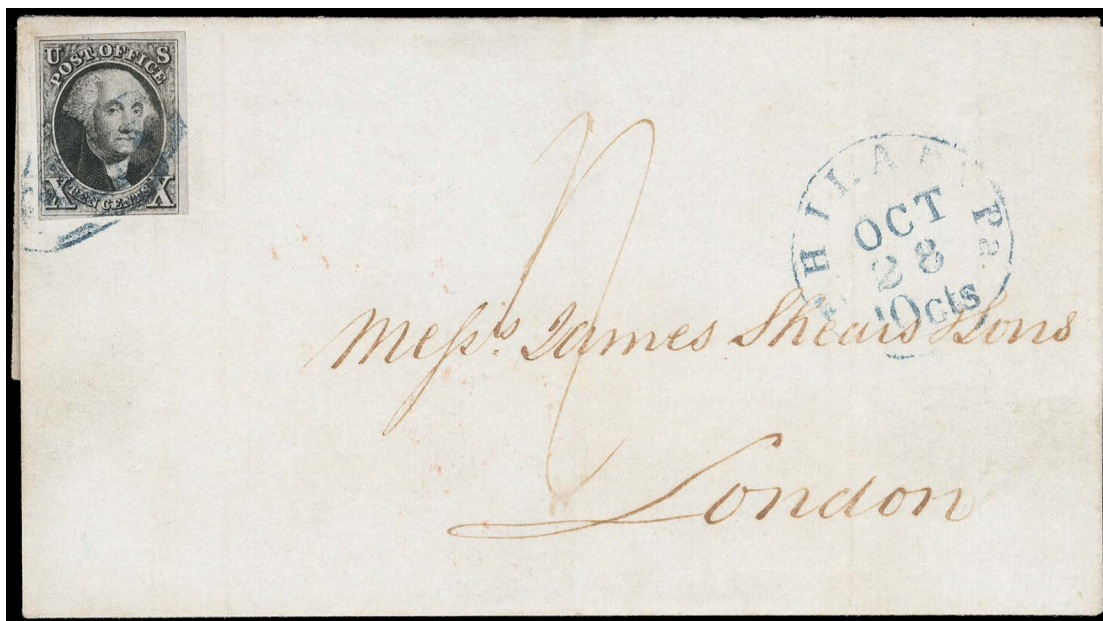 U S
POST OFFICE
X TEN CENTS X
PHILADA Pa.
OCT
28
10cts
Messrs. James Shears & Sons
London